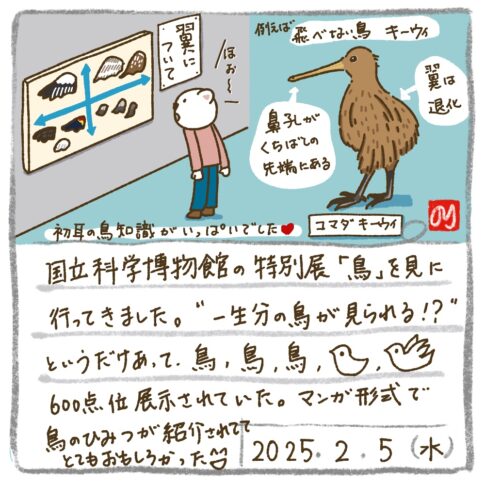 翼に
ついて
ほぉ〜
例えば
飛べない鳥 キーウィ
翼は
退化
鼻孔が
くちばしの
先端にある
初耳の鳥知識がいっぱいでした
コマダラキーウィ
国立科学博物館の特別展「鳥」を見に
行ってきました。“一生分の鳥が見られる!?”
というだけあって、鳥, 鳥, 鳥,
600点位展示されていた。マンガ形式で
鳥のひみつが紹介されてて
とてもおもしろかった
2025.2.5(水)